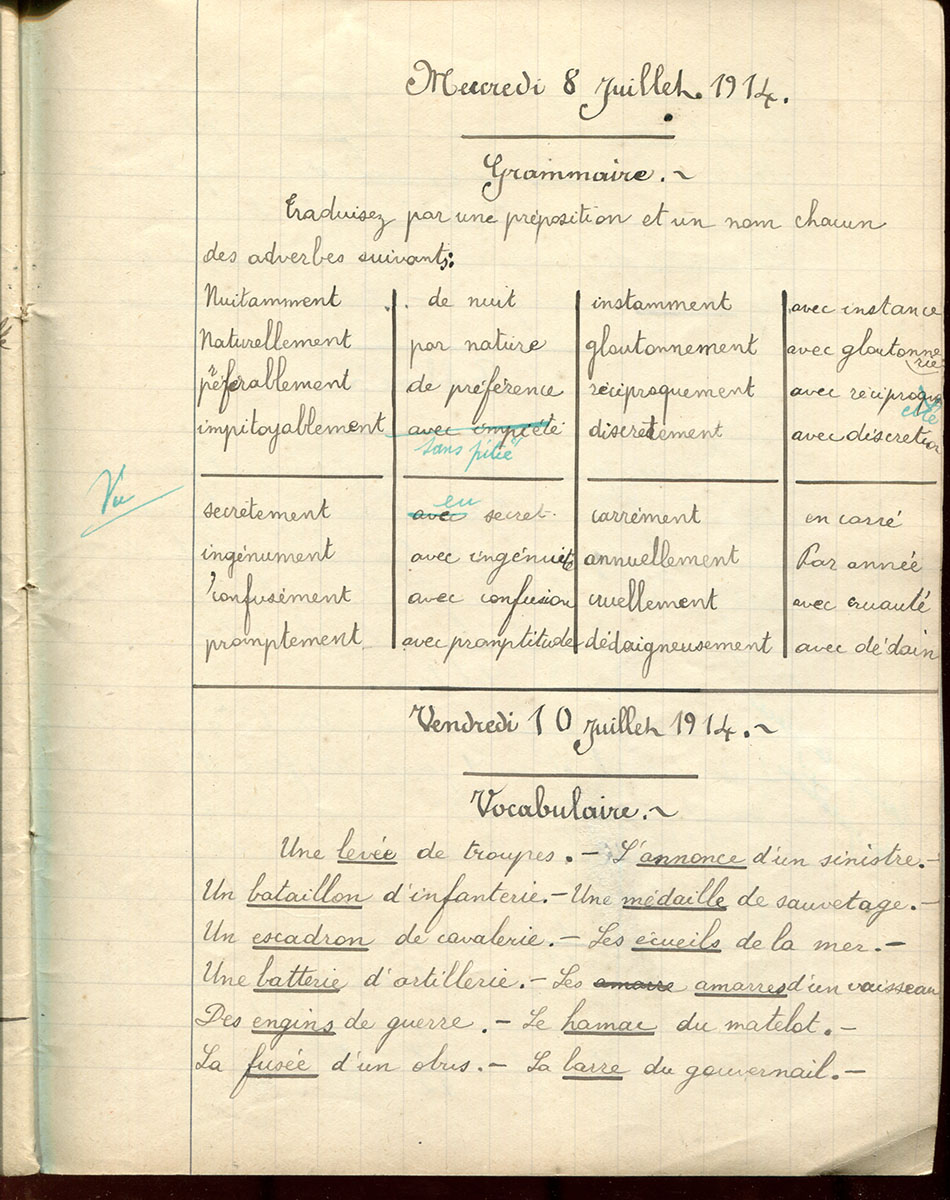 Mecredi 8 Juillet. 1914.
Grammaire.~
Traduisez par une préposition et un nom chacun
des adverbes suivants:
Nuitamment de nuit instamment avec instance
Naturellement par nature gloutonnement avec gloutonnerie
préférablement de préférence réciproquement avec réciprocité
impitoyablement avec impiété sans pitié discrètement avec discretion
Vu
secrètement avec en secret. carrément en carré
ingénument avec ingénuité annuellement Par année
confusément avec confusion cruellement avec cruauté
promptement avec promptitude dédaigneusement avec dédain
Vendredi 10 Juillet 1914.~
Vocabulaire.~
Une levée de troupes.- L'annonce d'un sinistre.-
Un bataillon d'infanterie.- Une médaille de sauvetage.-
Un escadron de cavalerie.- Les écueils de la mer.-
Une batterie d'artillerie.- Les amarre amarres d'un vaisseau
Des engins de guerre.- Le hamac du matelot.-
La fusée d'un obus.- La barre du gouvernail.-